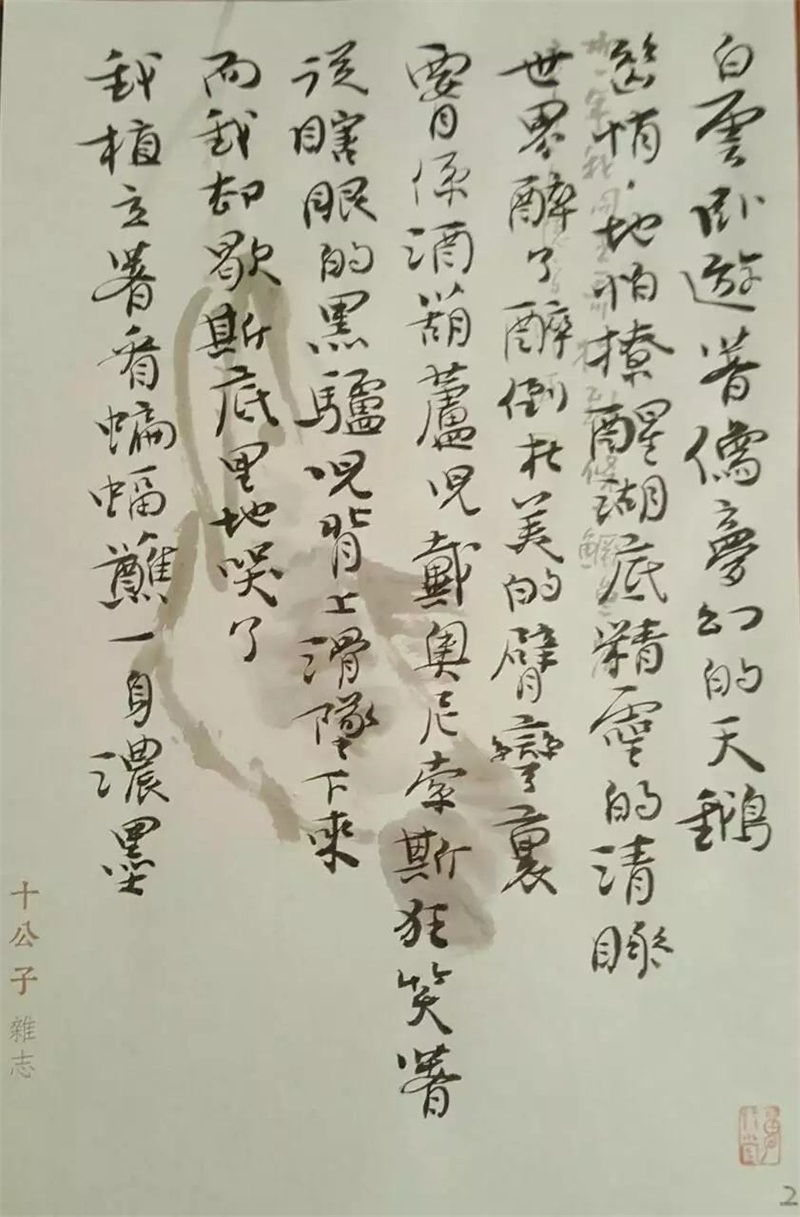 白雲卧遊著儒夢幻的天鵝
悄地怕撩醒湖底精靈的清
世界醉了醉倒在美的臂彎裏
腰係酒葫蘆兒戴奧尼索斯狂笑著
從瞎眼的黑驢兒背上滑墜下來
而我却歇斯底里地哭了
我植立著看蝙蝠蘸一身濃墨
十公子雜志
2